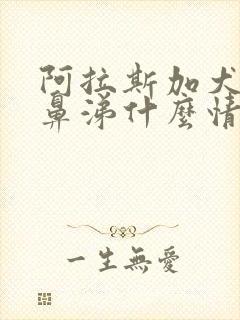 阿拉斯加犬
鼻涕什麼情
一生無愛